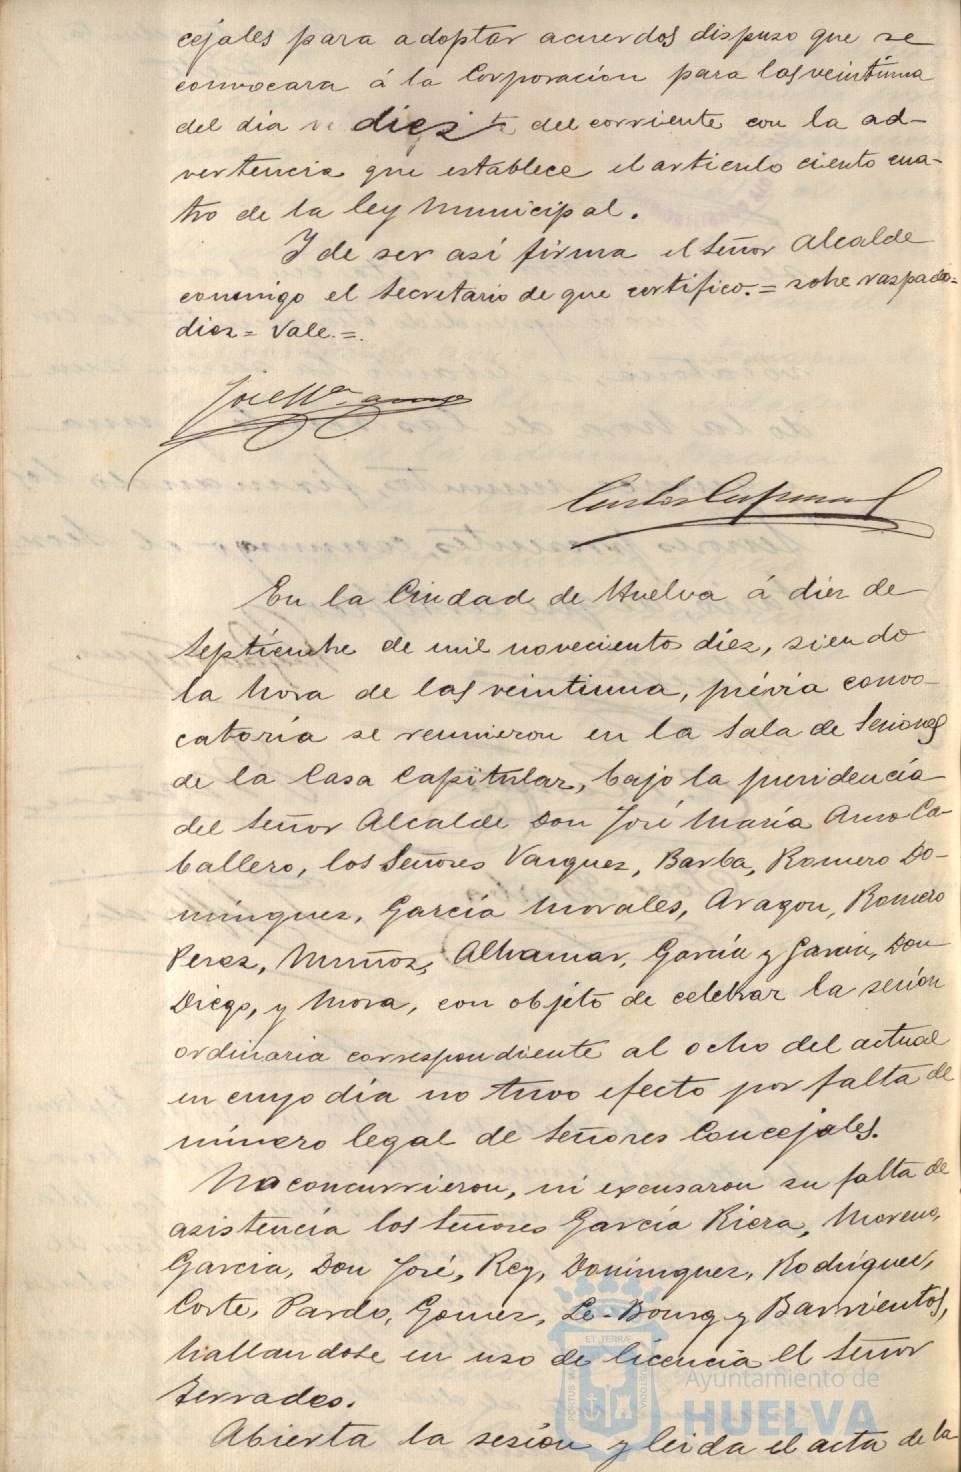 cejales para adoptar acuerdos dispuso que se
convocara á la Corporacion para las veintiuna
del dia diez del corriente con la ad-
vertencia que establece el articulo ciento cua-
tro de la ley Municipal.
Y de ser así firma el Señor Alcalde
conmigo el Secretario de que certifico.= sobre raspado=
diez= Vale.=
José Mª Amo
Carlos
En la Ciudad de Huelva á diez de
Septiembre de mil novecientos diez, siendo
la hora de las veintiuna, prévia convo-
catoría se reunieron en la Sala de Sesiones
de la Casa Capitular, bajo la presidencía
del Señor Alcalde Don José María Amo Ca-
ballero, los Señores Vazquez, Barba, Romero Do-
mínguez, García Morales, Aragon, Romero
Perez, Muñoz, Alhamar, García y García, Don
Diego, y Mora, con objeto de celebrar la sesión
ordinaria correspondiente al ocho del actual
en cuyo día no tuvo efecto por falta de
número legal de Señores Concejales.
No concurrieron, ni excusaron su falta de
asistencía los Señores García Riera, Moreno,
Garcia, Don José, Rey, Dominguez, Rodríguez,
Corte, Pardo, Gomez, Le-Bourg y Barrientos,
hallandose en uso de licencia el Señor
Terrades.
Abierta la sesión y leida el acta de la
ET TERRÆ
PORTUS MARIS
CUSTODIA
Ayuntamiento de
HUELVA